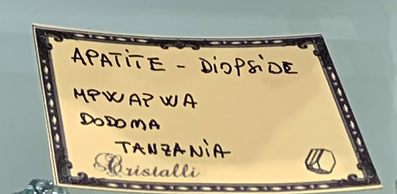 APATITE - DIOPSIDE
MPWAPWA
DODOMA
TANZANIA
Cristalli